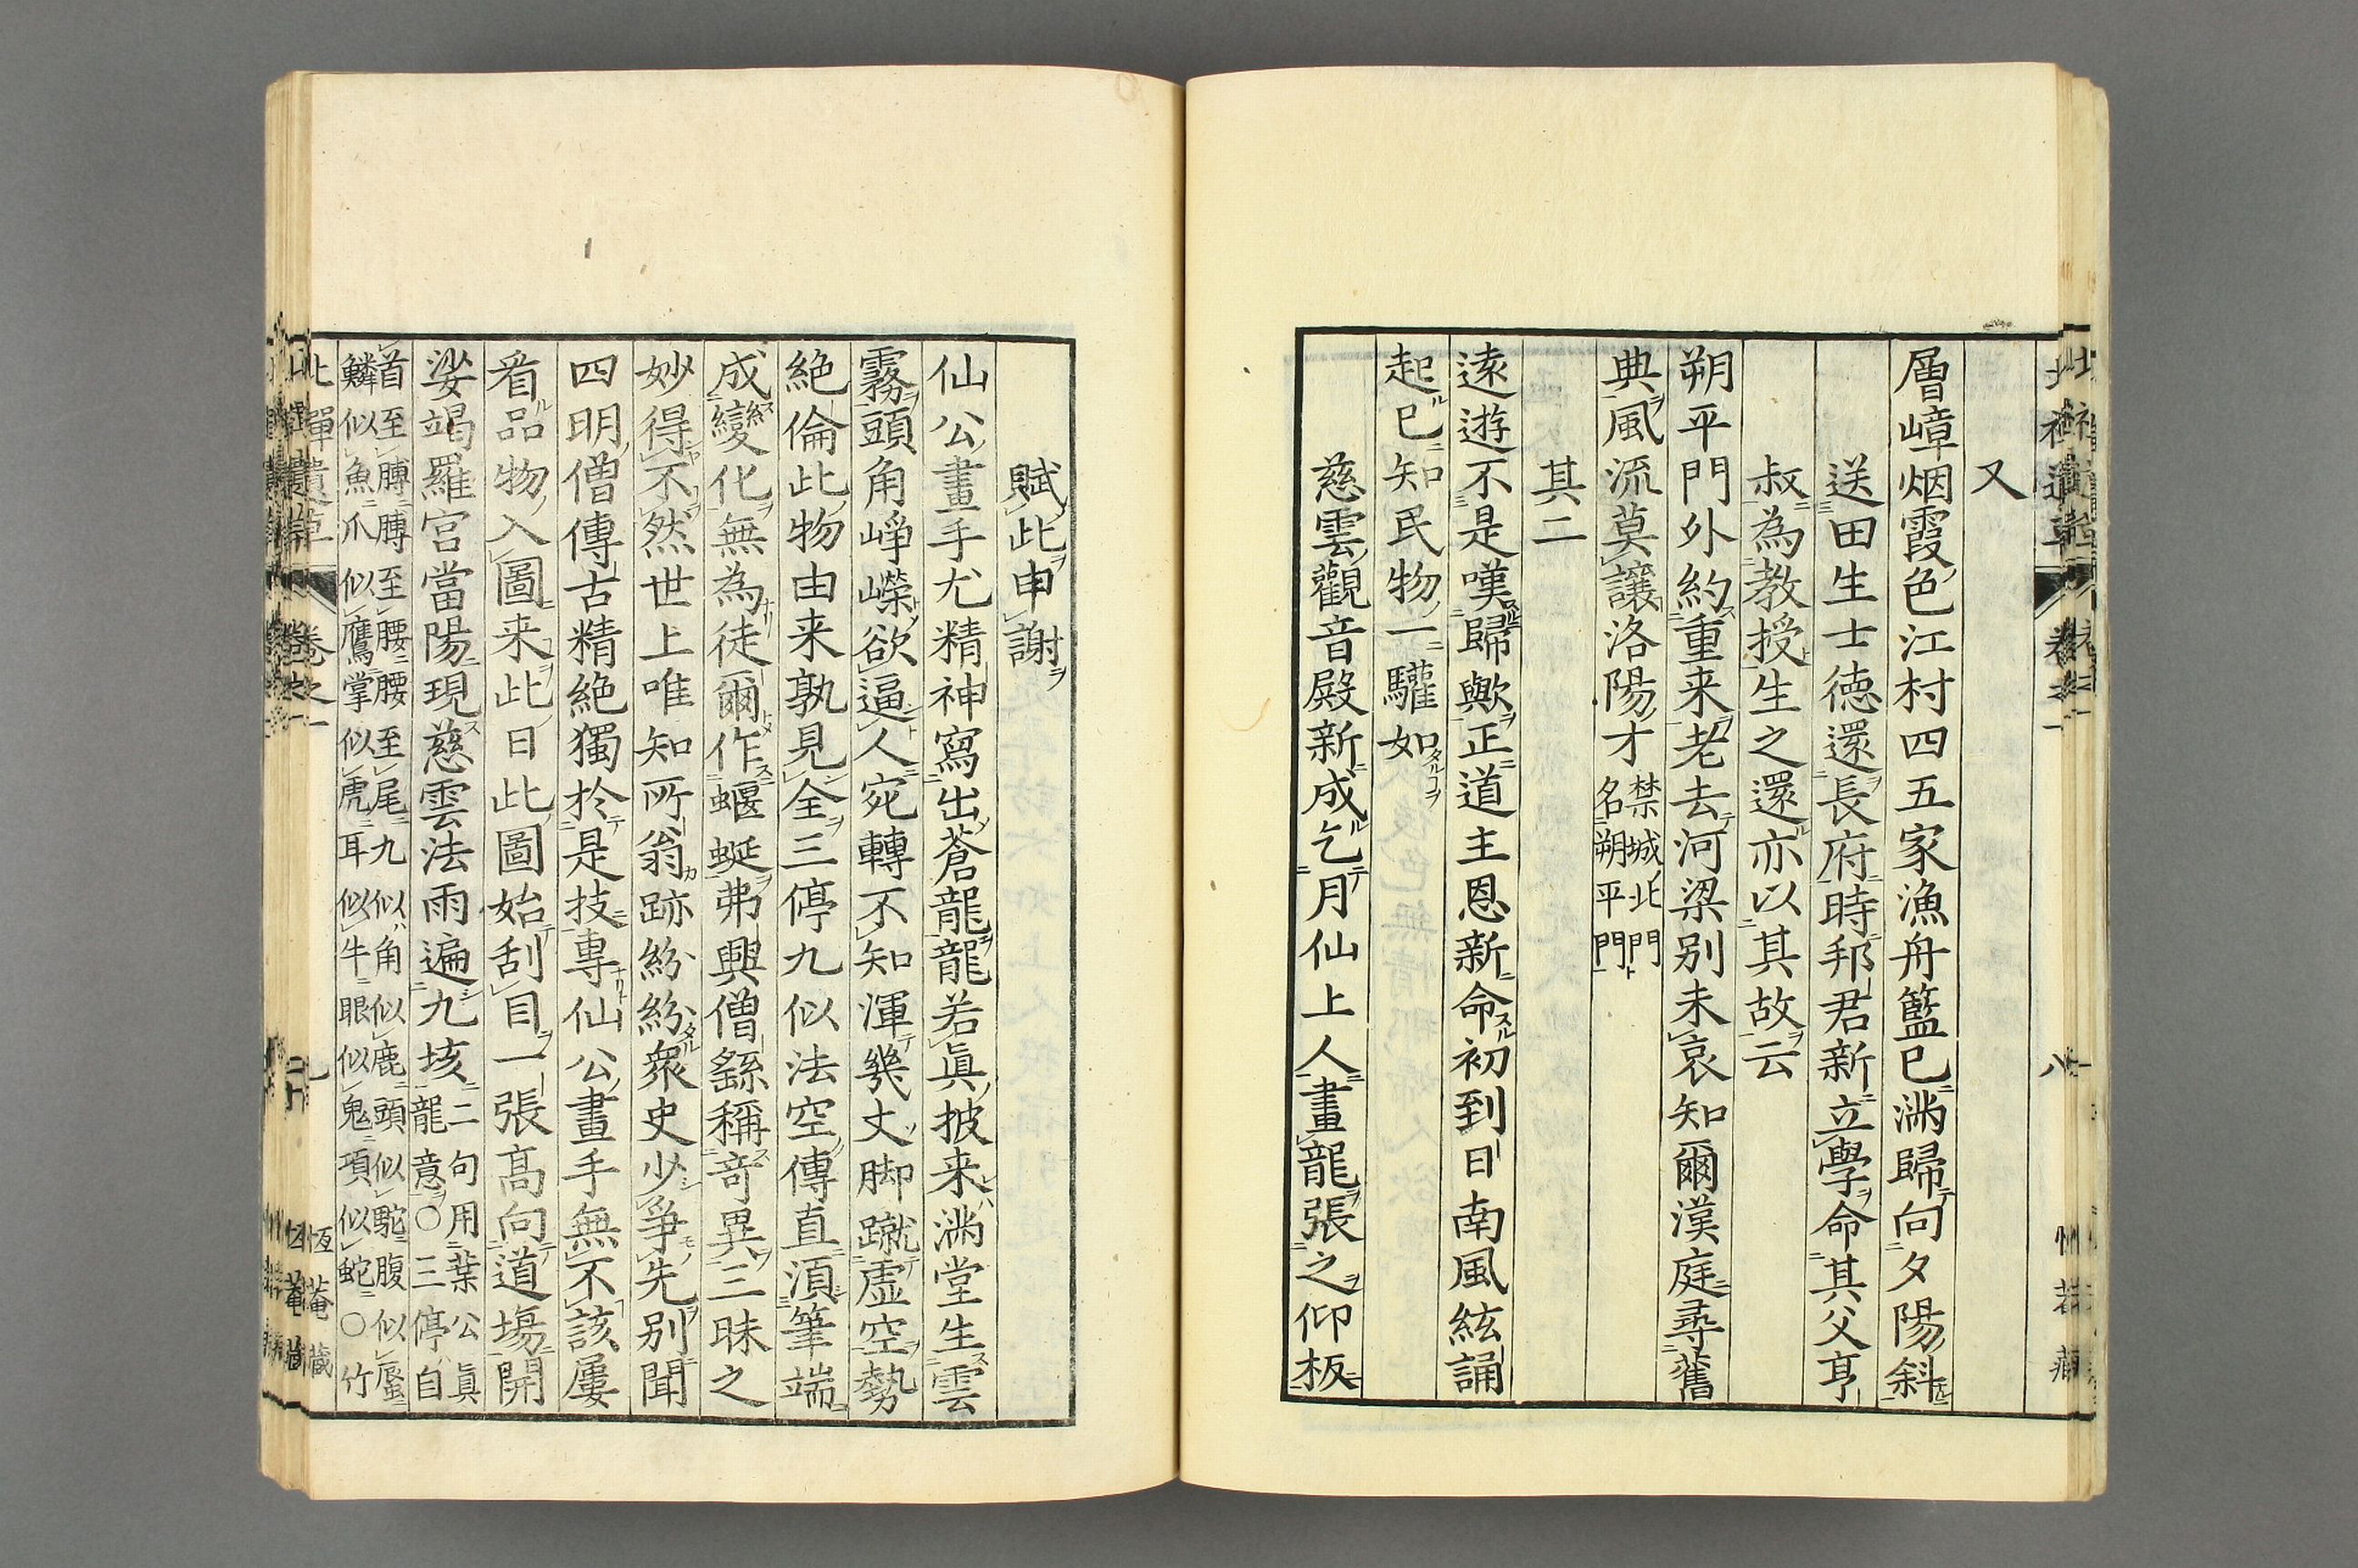 又
層嶂烟霞色江村四五家漁舟籃已滿歸向夕陽斜
送田生士德還長府時邦君新立學命其父亨
叔為教授生之還亦以其故云
朔平門外約重来老去河梁別未哀知爾漢庭尋舊
典風流莫讓洛陽才禁城北門名朔平門
其二
遠遊不是嘆歸歟正道主恩新命初到日南風絃誦
起已知民物一驩如
慈雲觀音殿新成乞月仙上人畫龍張之仰板
賦此申謝
仙公畫手尤精神寫出蒼龍龍若眞披来滿堂生雲
霧頭角崢嶸欲逼人宛轉不知渾幾丈脚蹴虚空勢
絶倫此物由来孰見全三停九似法空傳直湏筆端
成變化無為徒爾作蝘蜒弗興僧繇稱竒異三昧之
妙得不然世上唯知所翁跡紛紛衆史少爭先別聞
四明僧傳古精絶獨扵是技專仙公畫手無不該屢
看品物入圖来此日此圖始刮目一張髙向道場開
娑竭羅宮當陽現慈雲法雨遍九垓二句用葉公眞龍意○三停自
首至膊膊至腰腰至尾九似角似鹿頭似駝腹似蜃
鱗似魚爪似鷹掌似虎耳似牛眼似鬼項似蛇○竹
卷之一
恆菴藏